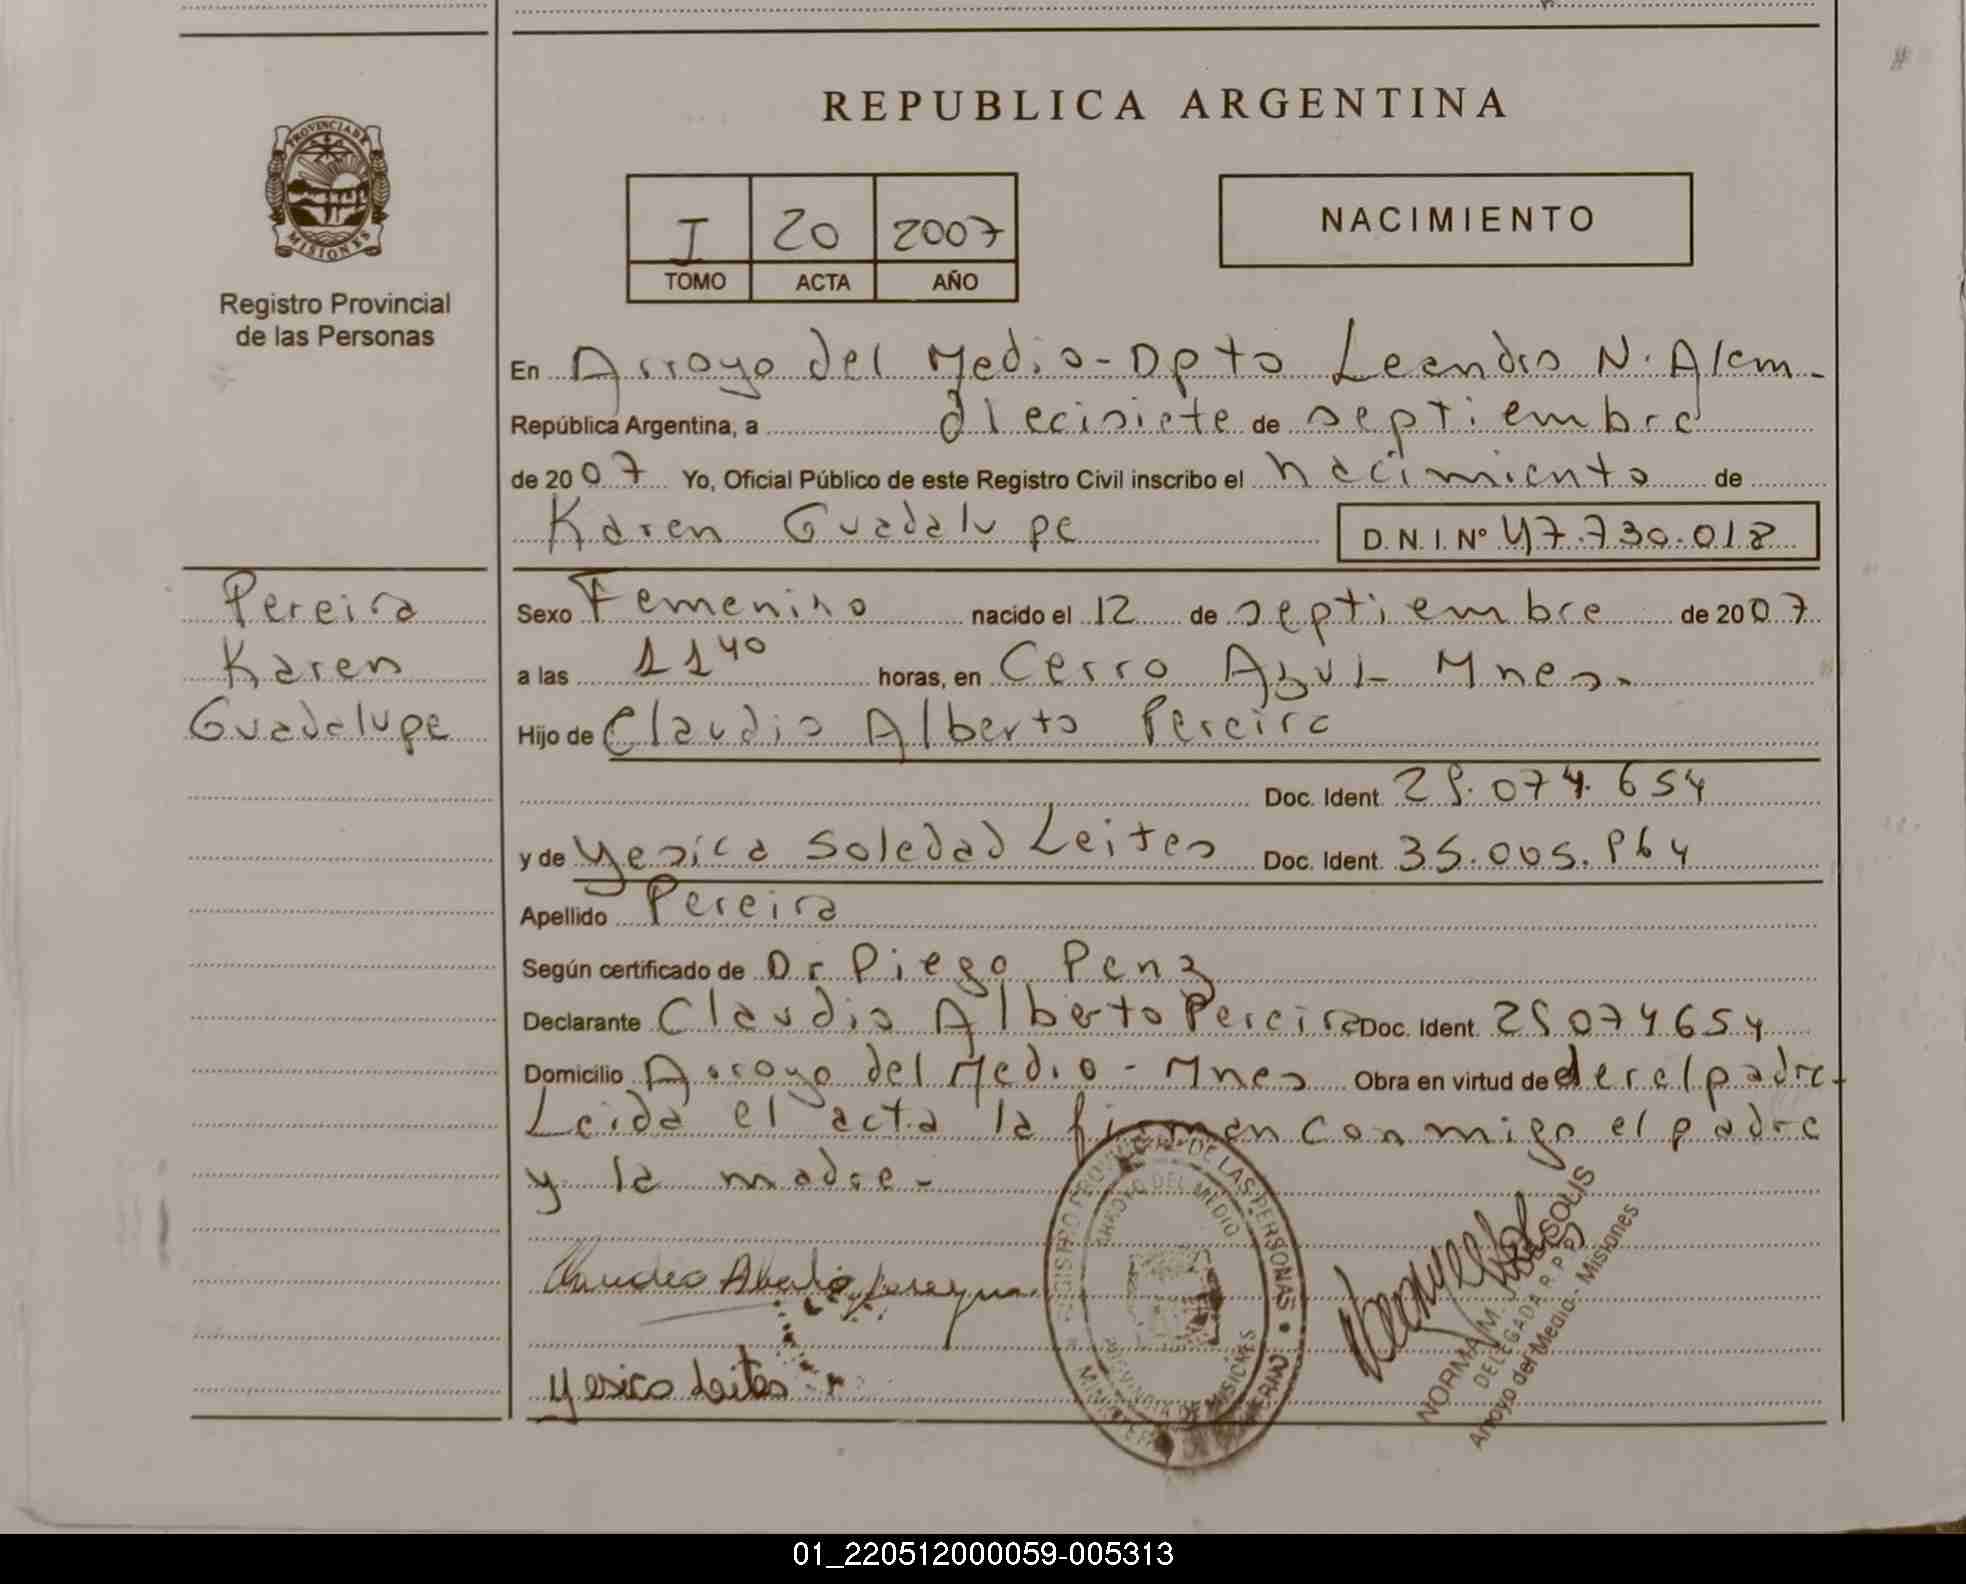 PROVINCIA DE
MISIONES
Registro Provincial
de las Personas
REPUBLICA ARGENTINA
I 20 2007
TOMO ACTA AÑO
NACIMIENTO
En Arroyo del Medio - Dpto Leandro N. Alem -
República Argentina, a diecisiete de septiembre
de 2007 Yo, Oficial Público de este Registro Civil inscribo el nacimiento de
Karen Guadalupe D. N. I. Nº 47.730.018
Pereira
Karen
Guadalupe
Sexo Femenino nacido el 12 de septiembre de 2007
a las 11 40 horas, en Cerro Azul - Mnes.
Hijo de Claudio Alberto Pereira
Doc. Ident. 074.654
y de Yesica Soledad Leites Doc. Ident. 35.005.
Apellido Pereira
Según certificado de Dr Diego Penz
Declarante Claudio Alberto Pereira Doc. Ident. 074654
Domicilio Arroyo del Medio - Mnes Obra en virtud de ser el padre -
Leida el acta la firman conmigo el padre
y la madre -
Claudio Alberto Pereyra
Yesica Leites
REGISTRO PROVINCIAL DE LAS PERSONAS
ARROYO DEL MEDIO
PROVINCIA DE MISIONES
NORMA M.
DELEGADA R.P.P.
Arroyo del Medio - Misiones
01_220512000059-005313